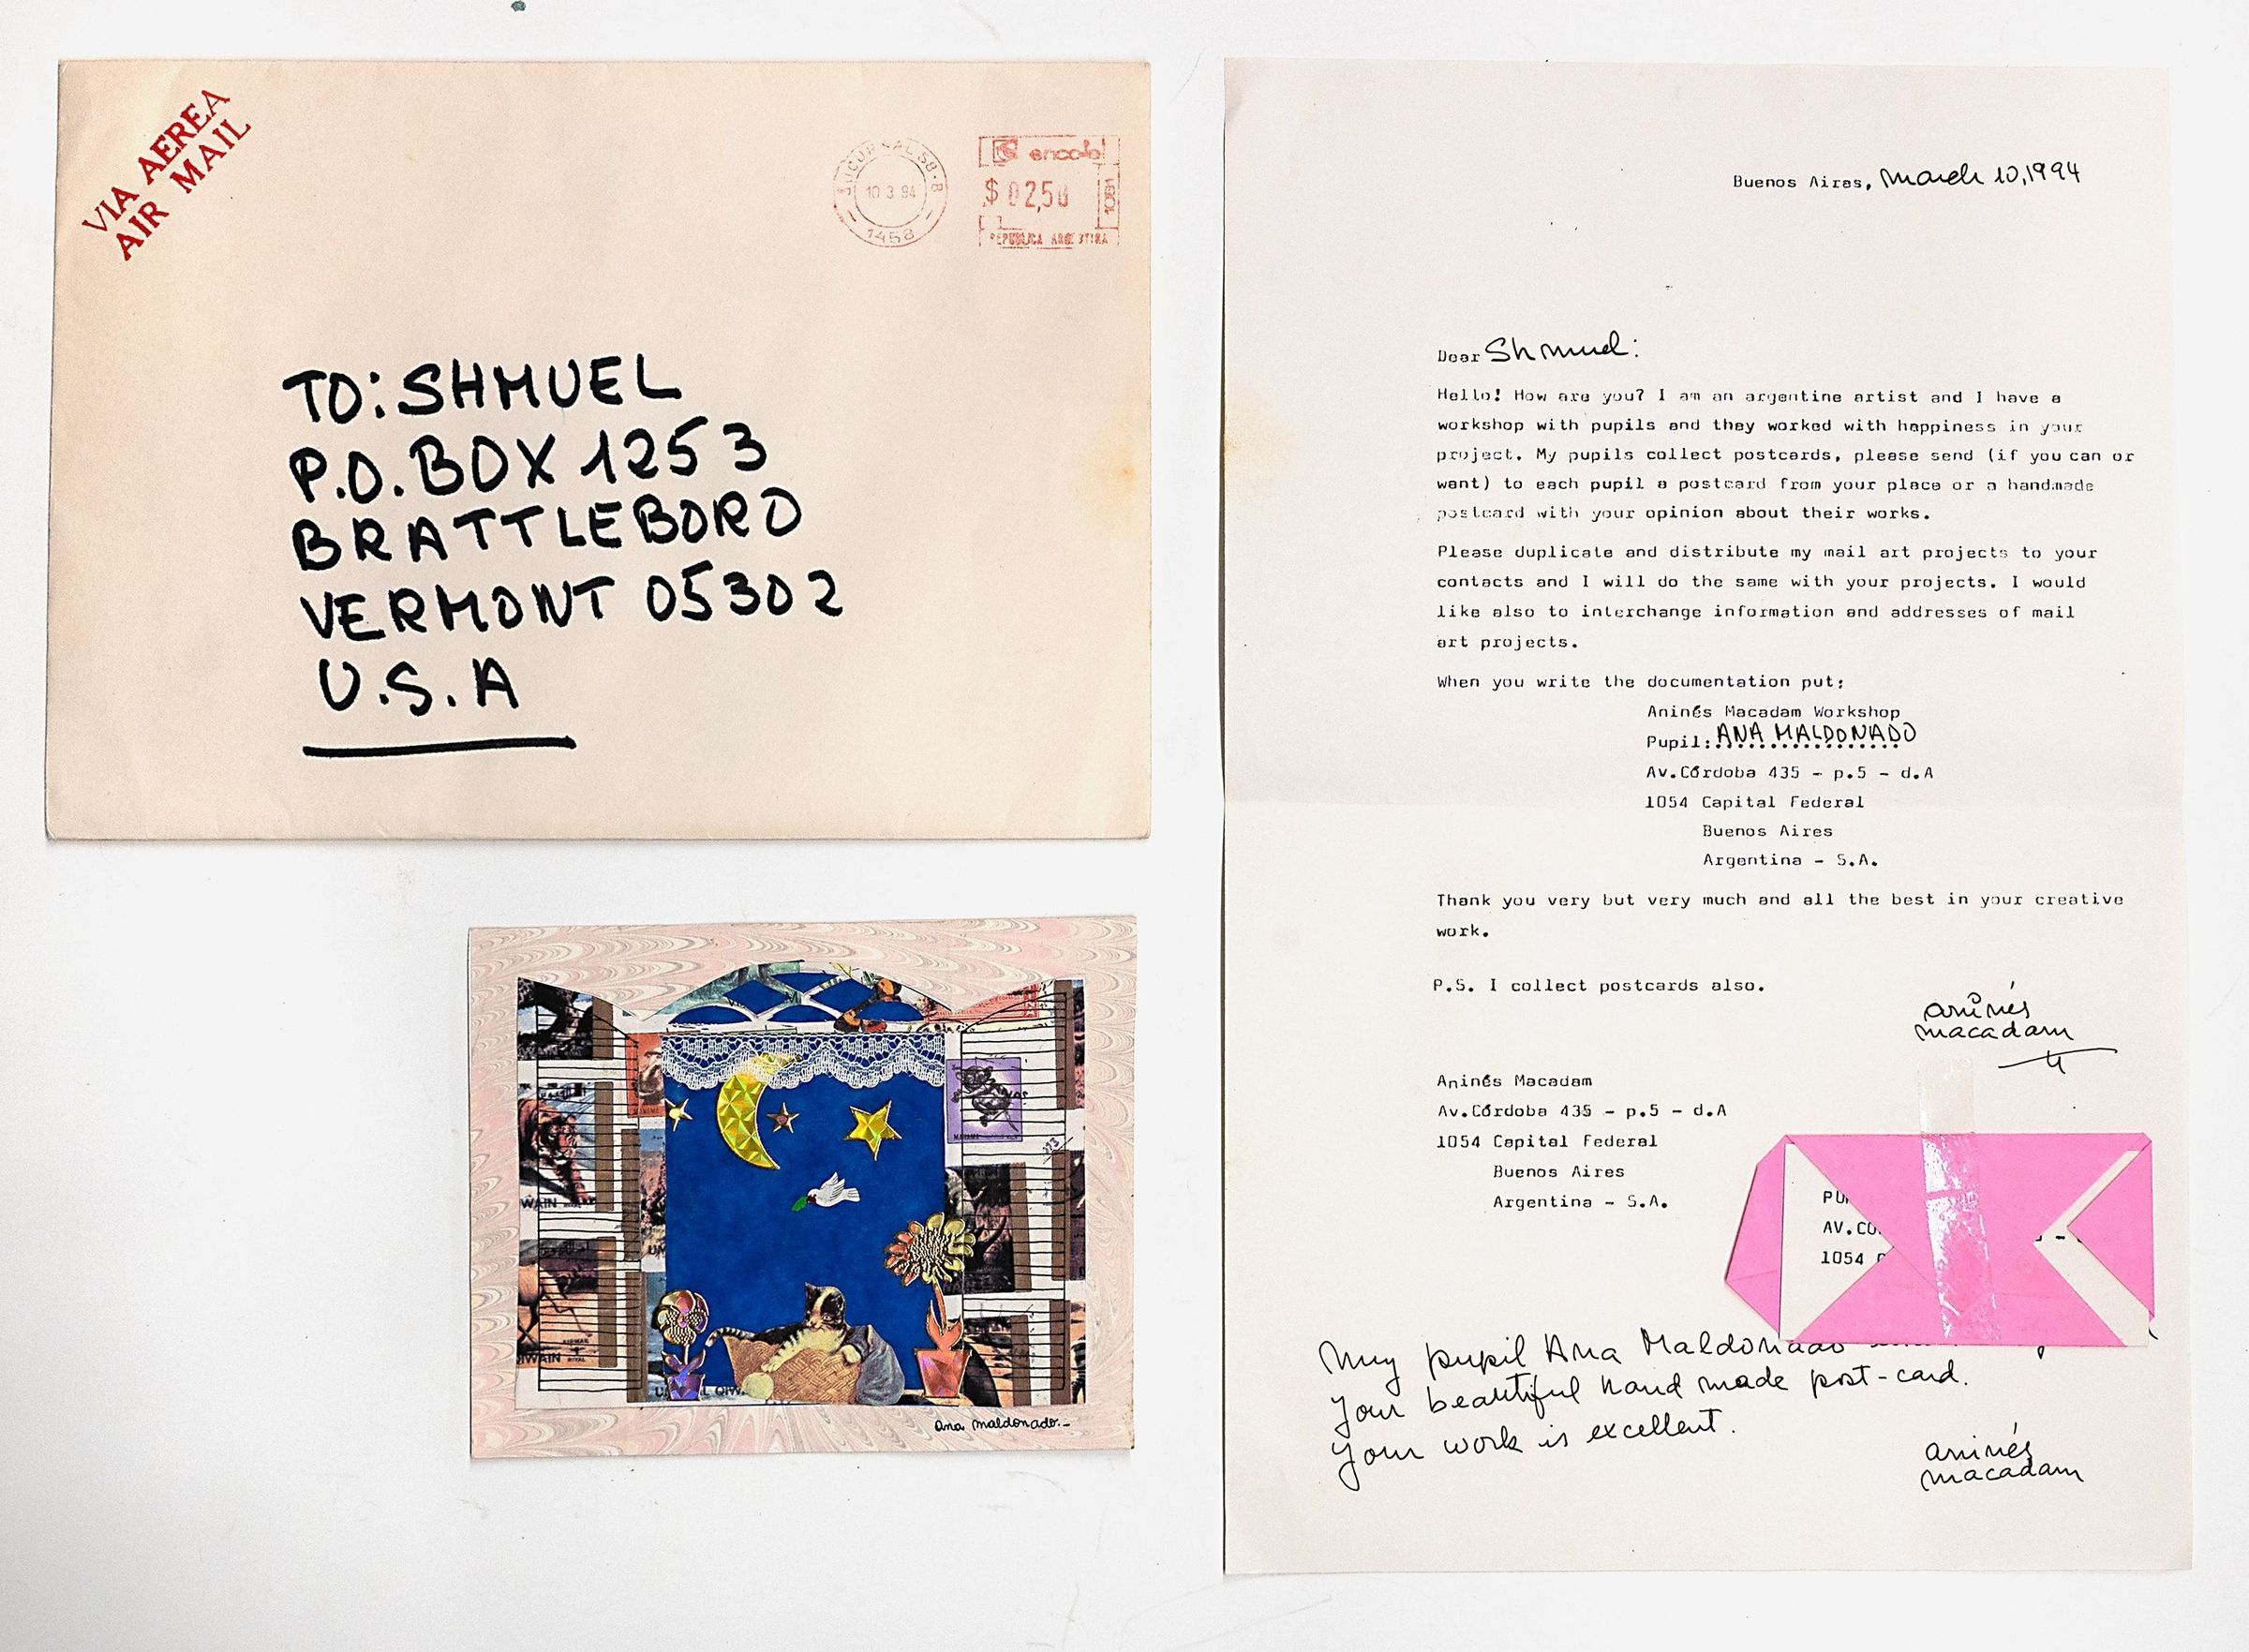 VIA AEREA
AIR MAIL
SUCURSAL 58-B
10 3 94
1458
encotel
$ 02,50
1081
REPUBLICA ARGENTINA
TO: SHMUEL
P.O. BOX 1253
BRATTLEBORO
VERMONT 05302
U.S.A
Buenos Aires, March 10, 1994
Dear Shmuel:
Hello! How are you? I am an argentine artist and I have a
workshop with pupils and they worked with happiness in your
project. My pupils collect postcards, please send (if you can or
want) to each pupil a postcard from your place or a handmade
postcard with your opinion about their works.
Please duplicate and distribute my mail art projects to your
contacts and I will do the same with your projects. I would
like also to interchange information and addresses of mail
art projects.
When you write the documentation put:
Aninés Macadam Workshop
Pupil: ANA MALDONADO
Av.Córdoba 435 - p.5 - d.A
1054 Capital Federal
Buenos Aires
Argentina - S.A.
Thank you very but very much and all the best in your creative
work.
P.S. I collect postcards also.
aninés
macadam
Aninés Macadam
Av.Córdoba 435 - p.5 - d.A
1054 Capital Federal
Buenos Aires
Argentina - S.A.
AV.CO
1054
My pupil Ana Maldonado
your beautiful hand made post-card.
Your work is excellent.
aninés
macadam
MANAMA
QIWAIN
AJMAN
ana maldonado.-